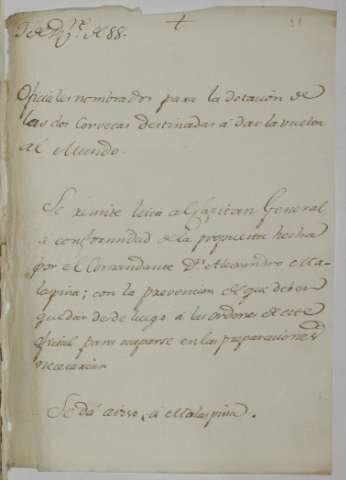 de 88.
Oficiales nombrados para la dotacion de
las dos Corvetas destinadas á dar la vuelta
al Mundo.
Se remite lista al Capitan General
á conformidad de la propuesta hecha
por el Comandante Dn. Alexandro Ma-
laspina; con la prevencion de que deben
quedar desde luego á las ordenes de este
oficial para ocuparse en las preparaciones
necesarias
Se dá aviso á Malaspina.